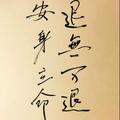 退無可退
安身立命